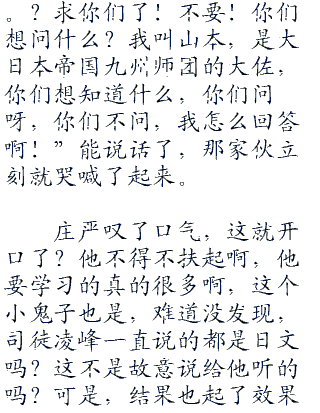 。？求你们了！不要！你们
想问什么？我叫山本，是大
日本帝国九州师团的大佐，
你们想知道什么，你们问
呀，你们不问，我怎么回答
啊！”能说话了，那家伙立
刻就哭喊了起来。
庄严叹了口气，这就开
口了？他不得不扶起啊，他
要学习的真的很多啊，这个
小鬼子也是，难道没发现，
司徒凌峰一直说的都是日文
吗？这不是故意说给他听的
吗？可是，结果也起了效果